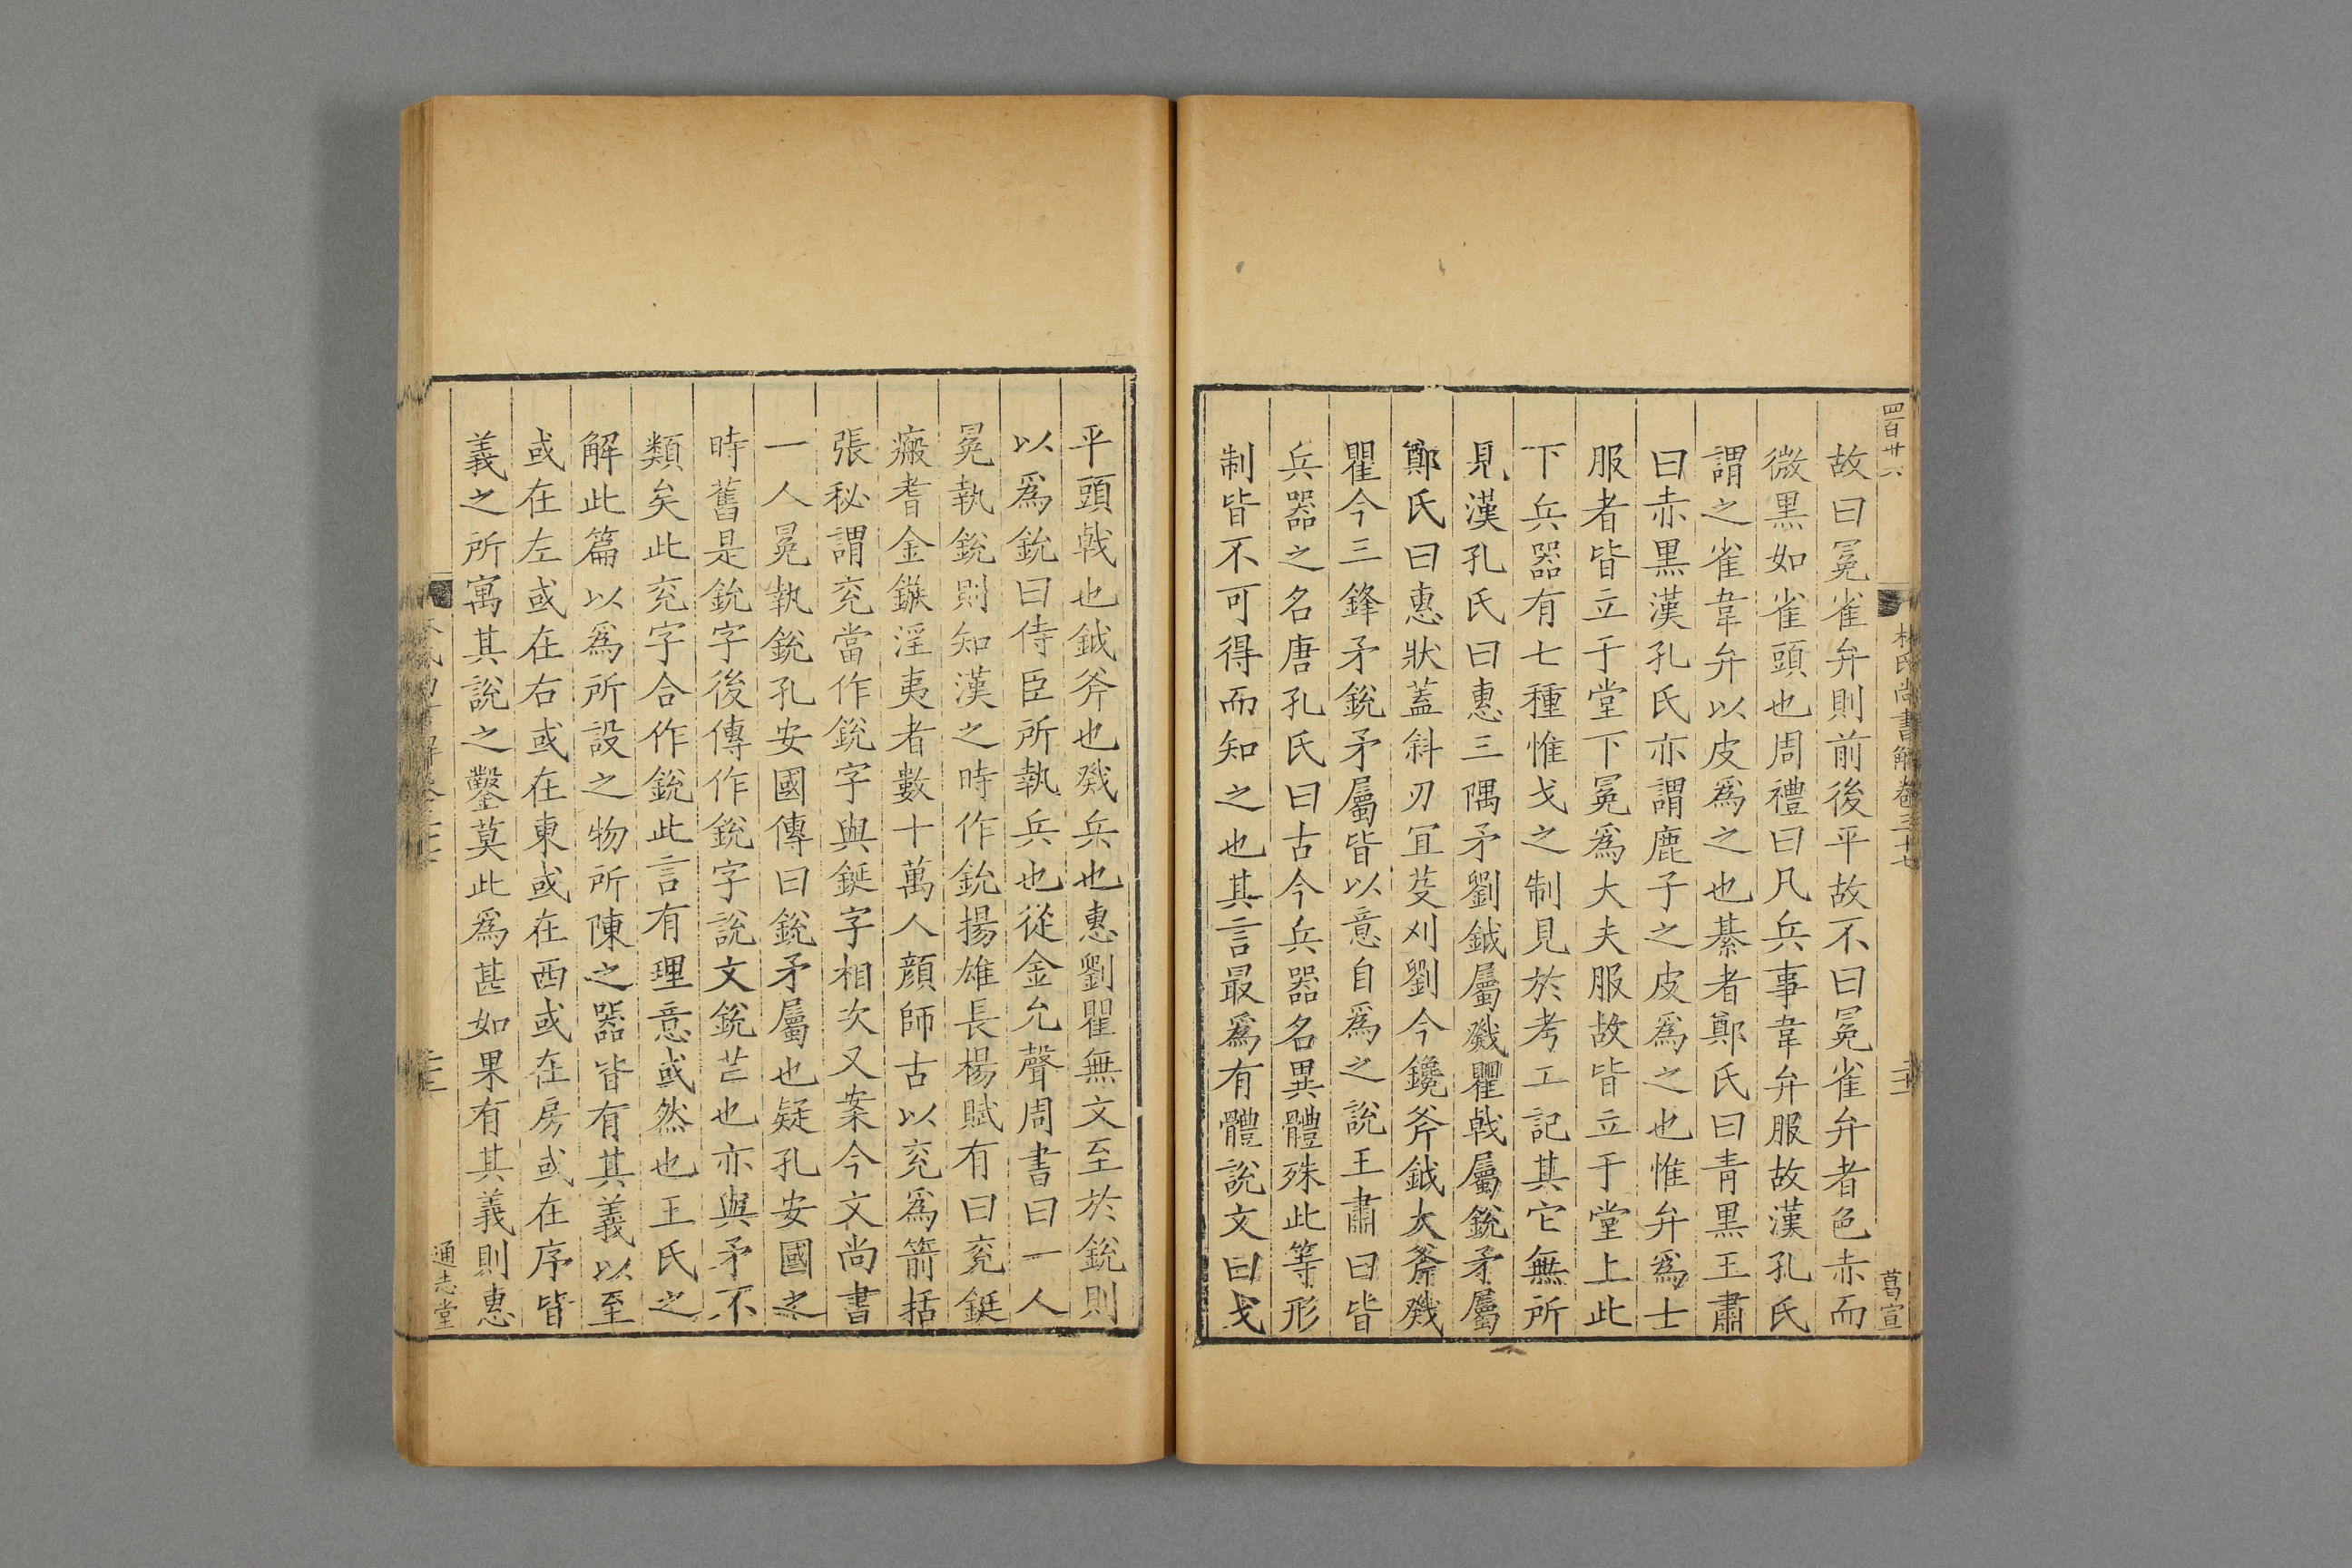 四百廿六
林氏尚書解卷三十七
葛宣
故曰冕雀弁則前後平故不曰冕雀弁者色赤而
微黒如雀頭也周禮曰凡兵事韋弁服故漢孔氏
謂之雀韋弁以皮爲之也綦者鄭氏曰青黒王肅
曰赤黒漢孔氏亦謂鹿子之皮爲之也惟弁爲士
服者皆立于堂下冕爲大夫服故皆立于堂上此
下兵器有七種惟戈之制見於考工記其它無所
見漢孔氏曰惠三隅矛劉鉞屬戣瞿戟屬銳矛屬
鄭氏曰惠狀蓋斜刃宜芟刈劉今鑱斧鉞大斧戣
瞿今三鋒矛銳矛屬皆以意自爲之說王肅曰皆
兵器之名唐孔氏曰古今兵器名異體殊此等形
制皆不可得而知之也其言最爲有體說文曰戈
平頭戟也鉞斧也戣兵也惠劉瞿無文至於銳則
以爲鈗曰侍臣所執兵也從金允聲周書曰一人
冕執鈗則知漢之時作鈗揚雄長楊賦有曰兖鋋
瘢耆金鏃淫夷者數十萬人顔師古以兖爲箭括
張秘謂兖當作鈗字與鋋字相次又案今文尚書
一人冕執銳孔安國傳曰銳矛屬也疑孔安國之
時舊是鈗字後傳作銳字說文銳芒也亦與矛不
類矣此兖字合作鈗此言有理意或然也王氏之
解此篇以爲所設之物所陳之器皆有其義以至
或在左或在右或在東或在西或在房或在序皆
義之所寓其說之鑿莫此爲甚如果有其義則惠
通志堂